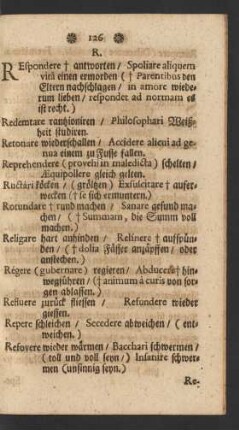 126
R.
REspondere † antworten / Spoliare aliquem
vitâ einen ermorden († Parentibus den
Eltern nachschlagen / in amore wiede-
rum lieben / respondet ad normam es
ist recht.)
Redemtare rantzioniren / Philosophari Weiß-
heit studiren.
Retonare wiederschallen / Accidere alicui ad ge-
nua einem zu Fusse fallen.
Reprehendere (provehi in maledicta) schelten /
Æquipollere gleich gelten.
Ructari köcken / (gröltzen) Exsuscitare † aufer-
wecken († se sich ermuntern.)
Rotundare † rund machen / Sanare gesund ma-
chen / († Summam, die Summ voll
machen.)
Religare hart anbinden / Relinere † aufspün-
den / († dolia Fässer anzäpffen / oder
anstechen.)
Regere (gubernare) regieren / Abducere † hin-
wegführen / († animum à curis von sor-
gen ablassen.)
Refluere zurück fliessen / Refundere wieder
giessen.
Repere schleichen / Secedere abweichen / (ent-
weichen.)
Refovere wieder wärmen / Bacchari schwermen /
(toll und voll seyn /) Insanire schwer-
men (unsinnig seyn.)
Re-